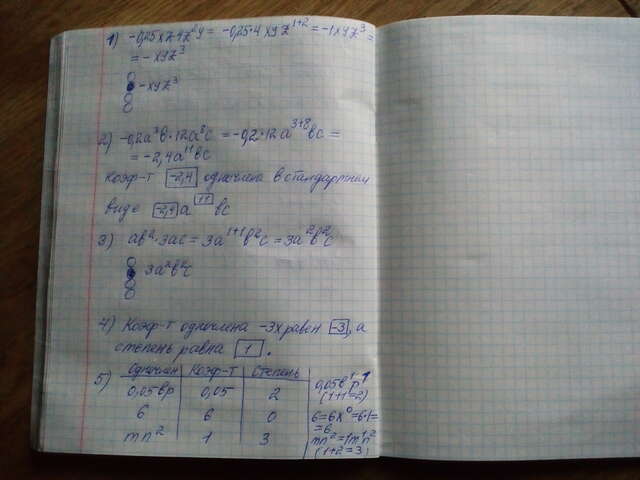 1) -0,25xz·4z²y = -0,25·4xyz¹⁺² = -1xyz³ =
= -xyz³
-xyz³
2) -0,2a³b·12a⁸c = -0,2·12a³⁺⁸bc =
= -2,4a¹¹bc
Коэф-т -2,4 одночлена в стандартном
виде -2,4 a¹¹ bc
3) ab²·3ac = 3a¹⁺¹b²c = 3a²b²c
3a²b²c
4) Коэф-т одночлена -3x равен -3, а
степень равна 1.
5) Одночлен Коэф-т Степень
0,05bp 0,05 2 0,05b¹p¹
(1+1=2)
6 6 0 6=6x⁰=6·1=
=6
mn² 1 3 mn²=1m¹n²
(1+2=3)